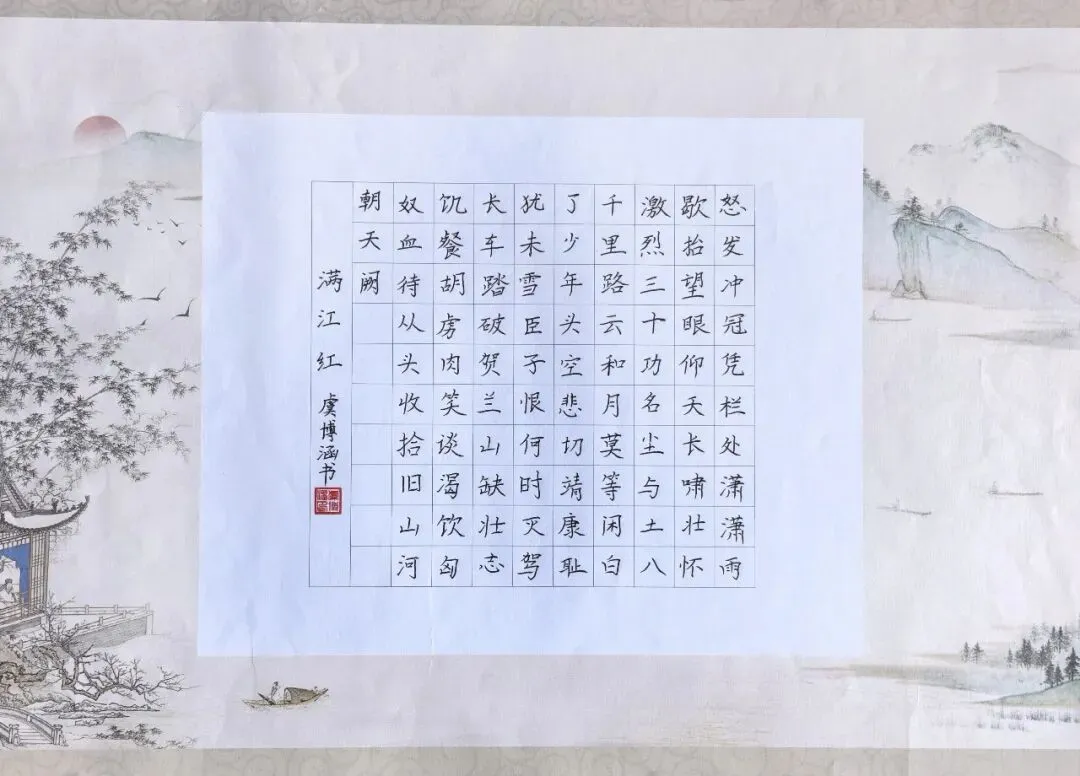 怒发冲冠凭栏处潇潇雨
歇抬望眼仰天长啸壮怀
激烈三十功名尘与土八
千里路云和月莫等闲白
了少年头空悲切靖康耻
犹未雪臣子恨何时灭驾
长车踏破贺兰山缺壮志
饥餐胡虏肉笑谈渴饮匈
奴血待从头收拾旧山河
朝天阙
满江红 虞博涵书